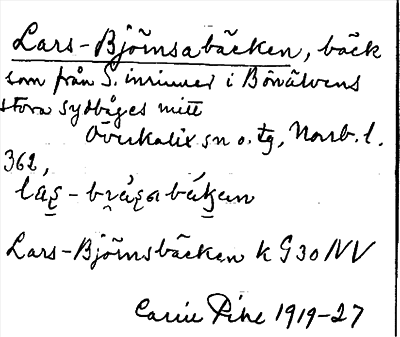 Lars-Björnsabäcken, bäck
som från S. inrinner i Börälvens
stora sydbåges mitt
Överkalix sn o. tg, Norrb. l.
362,
Lars-Björnsbäcken k G30 NV
1919-27